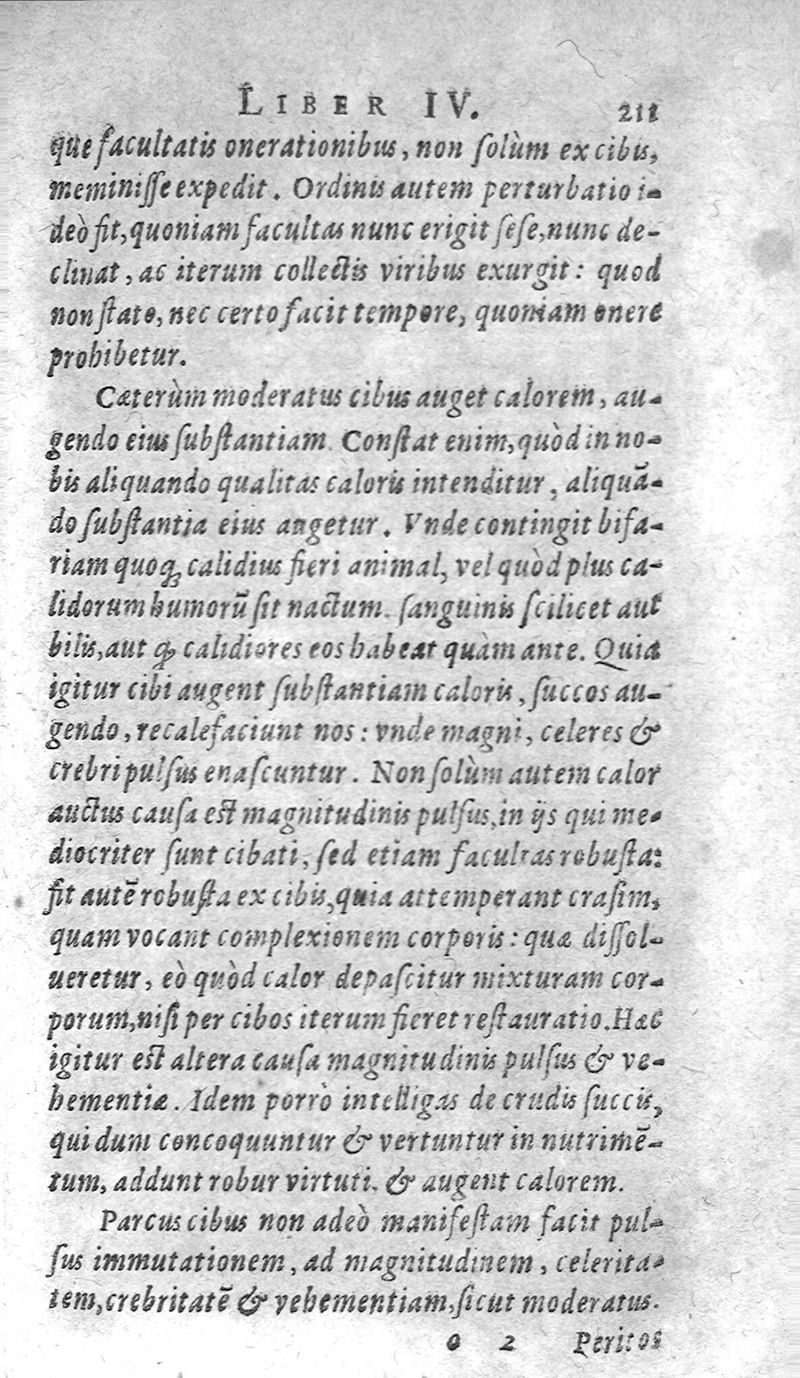 LIBER IV. 211
que facultatis onerationibus, non ſolùm ex cibis,
meminiſſe expedit. Ordinis autem perturbatio i-
deò fit, quoniam facultas nunc erigit ſeſe, nunc de-
clinat, ac iterum collectis viribus exurgit: quod
non ſtato, nec certo facit tempore, quoniam onere
prohibetur.
Cæterùm moderatus cibus auget calorem, au-
gendo eius ſubſtantiam. Conſtat enim, quòd in no-
bis aliquando qualitas caloris intenditur, aliquã-
do ſubſtantia eius augetur. Vnde contingit bifa-
riam quoq; calidius fieri animal, vel quòd plus ca-
lidorum humorũ ſit nactum. ſanguinis ſcilicet aut
bilis, aut ꝙ calidiores eos habeat quàm ante. Quia
igitur cibi augent ſubſtantiam caloris, ſuccos au-
gendo, recalefaciunt nos: vnde magni, celeres &
crebri pulſus enaſcuntur. Non ſolùm autem calor
auctus cauſa eſt magnitudinis pulſus, in ijs qui me-
diocriter ſunt cibati, ſed etiam facultas robuſta:
fit autẽ robuſta ex cibis, quia attemperant craſim,
quam vocant complexionem corporis: quæ diſſol-
ueretur, eò quòd calor depaſcitur mixturam cor-
porum, niſi per cibos iterum fieret reſtauratio. Hæc
igitur eſt altera cauſa magnitudinis pulſus & ve-
hementiæ. Idem porrò intelligas de crudis ſuccis,
qui dum concoquuntur & vertuntur in nutrimẽ-
tum, addunt robur virtuti. & augent calorem.
Parcus cibus non adeò manifeſtam facit pul-
ſus immutationem, ad magnitudinem, celerita-
tem, crebritatẽ & vehementiam, ſicut moderatus.
o 2 Peritos